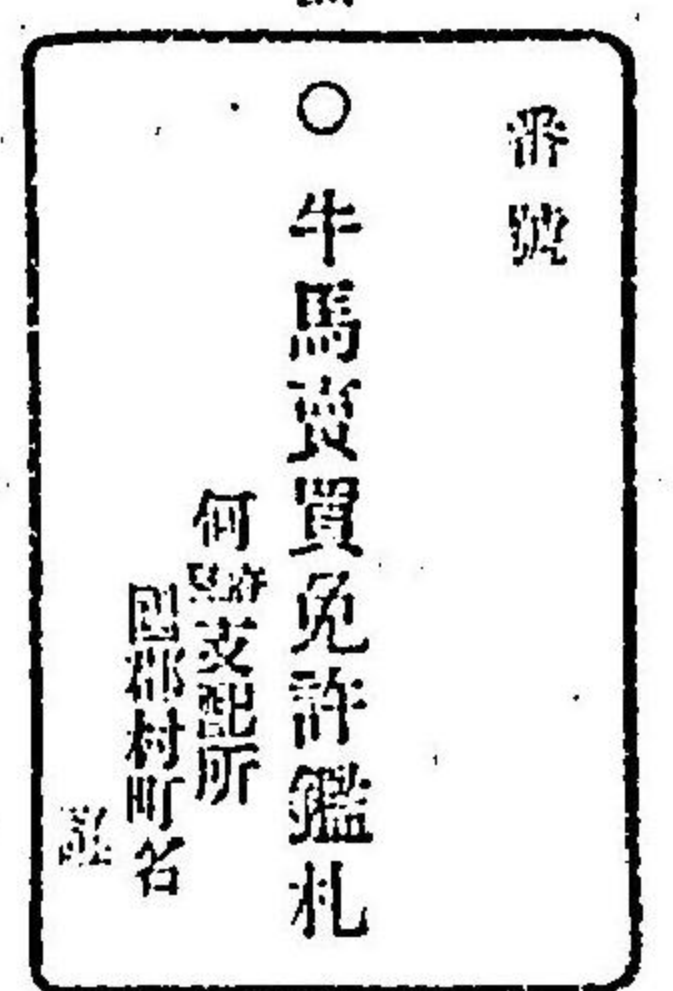 番號
○牛馬賣買免許鑑札
何府縣支配所
國郡村町名